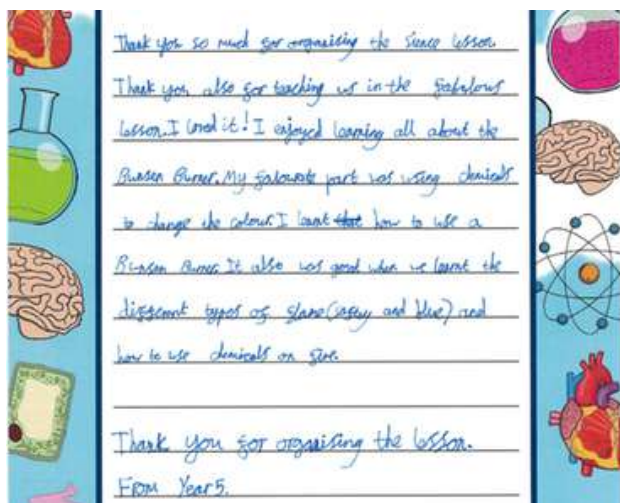 Thank you so much for organising the sience lesson.
Thank you also for teaching us in the fabulous
lesson. I loved it! I enjoyed learning all about the
Bunsen Burner. My favourate part was using chemicals
to change the colour. I learnt that how to use a
Bunsen Burner. It also was good when we learnt the
different types of flame (safey and blue) and
how to use chemicals on fire.
Thank you for organising the lesson.
From Year 5.